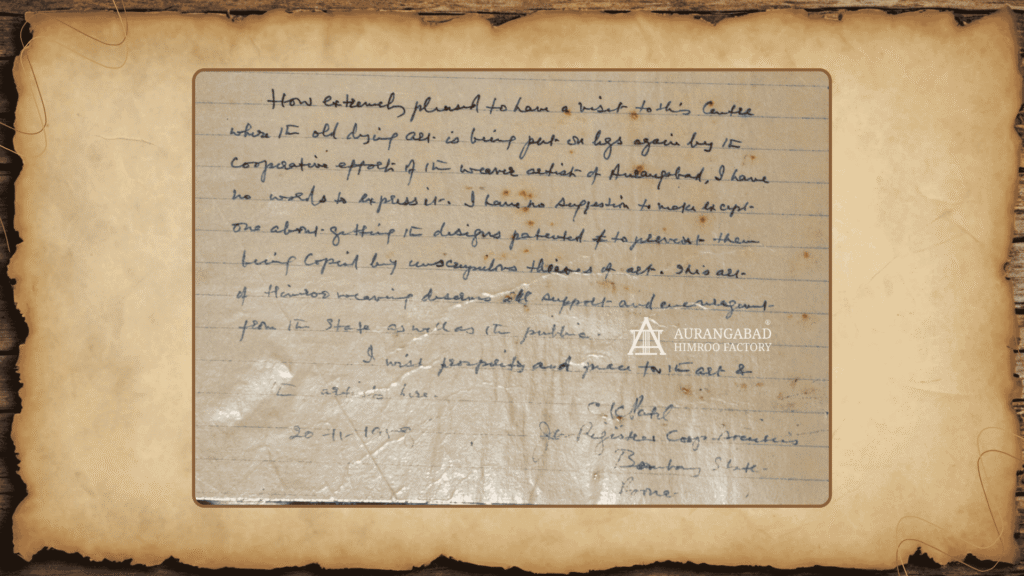 How extremely pleased to have a visit to this Centre
when the old dying art is being put on legs again by the
cooperative efforts of the weaver artist of Aurangabad, I have
no words to express it. I have no suggestion to make except
one about getting the designs patented & to prevent them
being Copied by unscrupulous thieves of art. This art
of Himroo weaving deserves all support and encouragement
from the State as well as the public.
AURANGABAD
HIMROO FACTORY
I wish prosperity and grace to the art &
the artists here.
C K Patil
20-11-
Registrar Coop. Societies
Bombay State